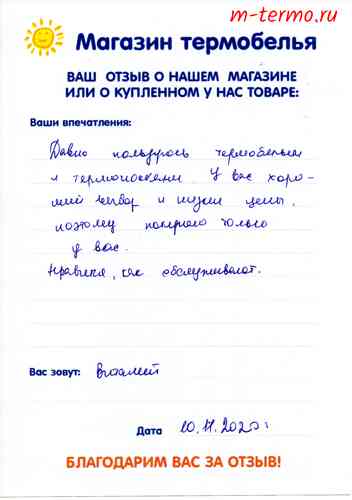 m-termo.ru
Магазин термобелья
ВАШ ОТЗЫВ О НАШЕМ МАГАЗИНЕ
ИЛИ О КУПЛЕННОМ У НАС ТОВАРЕ:
Ваши впечатления:
Давно пользуюсь термобельем
и термоносками. У вас хоро-
ший выбор и низкие цены,
поэтому покупаю только
у вас.
Нравится, как обслуживают.
Вас зовут: Виталий
Дата 10.11.2020г
БЛАГОДАРИМ ВАС ЗА ОТЗЫВ!